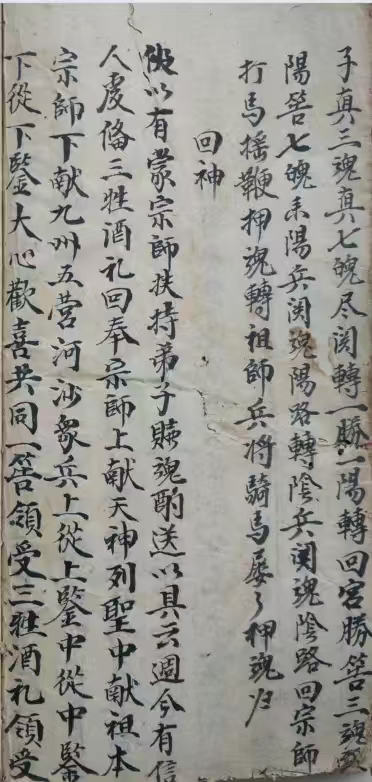 子真三魂真七魄尽関轉一勝一陽轉回宮勝筶三魂
陽筶七魄未陽兵関魂陽路轉陰兵関魂陰路回宗師
打馬搖鞭押魂轉祖師兵将騎馬屡々押魂归
回神
伏以有蒙宗師扶持弟子贖魂酌送以具云週今有信
人虔俻三牲酒礼回奉宗師上献天神列聖中献祖本
宗師下献九州五营河沙衆兵上從上鑒中從中鑒
下從下鑒大心歡喜共同一筶領受三牲酒礼領受